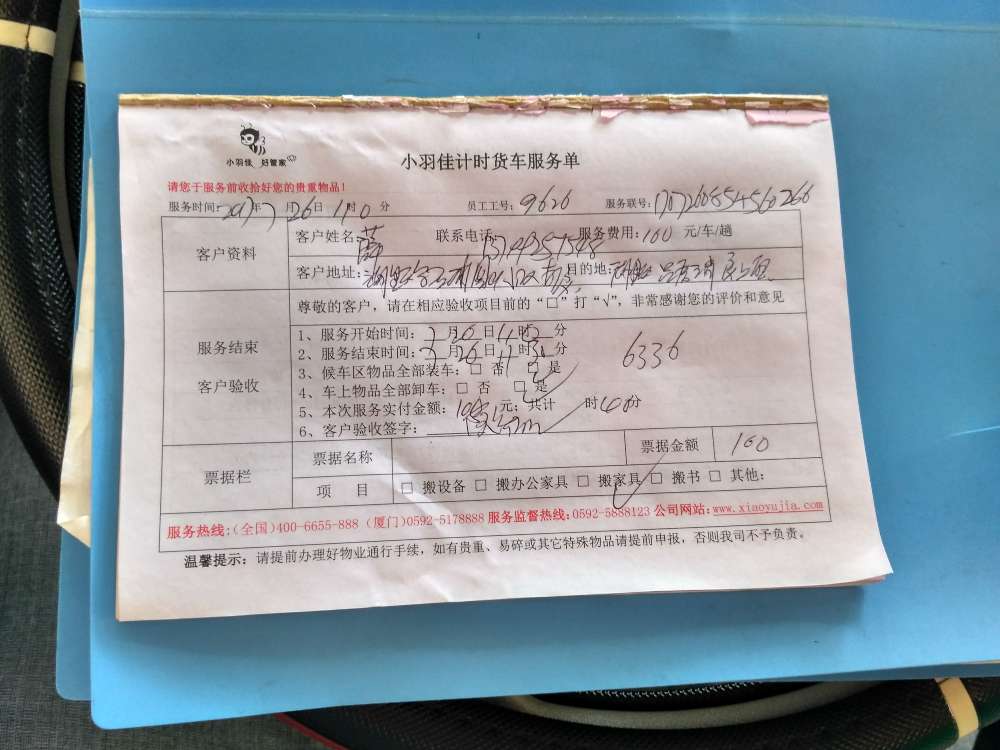 小羽佳 好管家
小羽佳计时货车服务单
请您于服务前收拾好您的贵重物品!
服务时间: 2017年7月26日11时0分 员工工号: 9626 服务联号:
客户资料 客户姓名: 联系电话: 服务费用: 160 元/车/趟
客户地址: 目的地:
尊敬的客户,请在相应验收项目前的“□”打“√”,非常感谢您的评价和意见
服务结束 客户验收
1、服务开始时间: 7月26日11时 分
2、服务结束时间: 7月26日11时 分
6336
3、候车区物品全部装车: □ 否 □ 是
4、车上物品全部卸车: □ 否 □ 是
5、本次服务实付金额: 元; 共计 时40分
6、客户验收签字:
票据栏 票据名称 票据金额 160
项 目 □ 搬设备 □ 搬办公家具 □ 搬家具 □ 搬书 □ 其他:
服务热线:(全国)400-6655-888 (厦门)0592-5178888 服务监督热线:0592-5888123 公司网站:www.xiaoyujia.com
温馨提示: 请提前办理好物业通行手续,如有贵重、易碎或其它特殊物品请提前申报,否则我司不予负责。